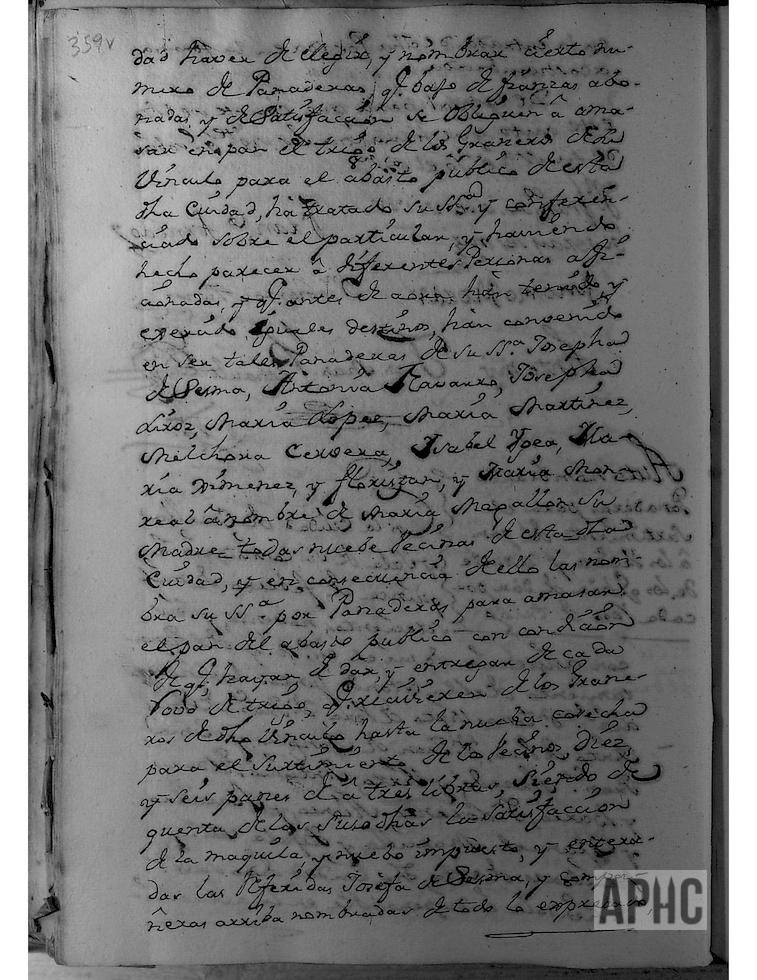 359v
dad haver de elegir, y nombrar cierto nu-
mero de Panaderas, qe. bajo de fianzas abo-
nadas y de Satisfacción se obliguen â ama-
sar en pan el trigo de los Graneros del
Vinculo para el abasto público de esta
dha Ciudad, ha tratado su SSa. y conferen-
ciado sobre el particular, y haviendo
hecho parecer â diferentes Personas afi-
cionadas, y qe. antes de aora han tenido y
exercido iguales destinos, han convenido
en ser tales Panaderas de su SSa. Josepha
de Sesma, Antonia Navarro, Josepha
Liroz, María Lopez, María Martinez,
Melchora Cervera, Ysabel Ygea, Ma-
ría Ximenez, y floristan, y María Mon-
real â nombre de María Magallon su
Madre todas nuebe Vecinas de esta dha
Ciudad, y en consecuencia de ello las nom-
bra su SSa. por Panaderas para amasar
el pan del abasto publico con condición
de qe. hayan de dar, y entregar de cada
Robo de trigo, qe. recivieren de los Grane-
ros de dho Vinculo hasta la nueba cosecha
para el surtimiento de los Vecinos, Diez,
y seis panes de â tres libras, siendo de
quenta de las susodhas la satisfacción
de la maquila, y nuebo impuesto, y entera-
das las Referidas Josefa de Sesma, y compa-
ñeras arriba nombradas de todo lo expresado,
APHC